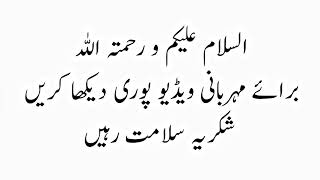 السلام علیکم و رحمتہ اللہ
برائے مہربانی ویڈیو پوری دیکھا کریں
شکریہ سلامت رہیں